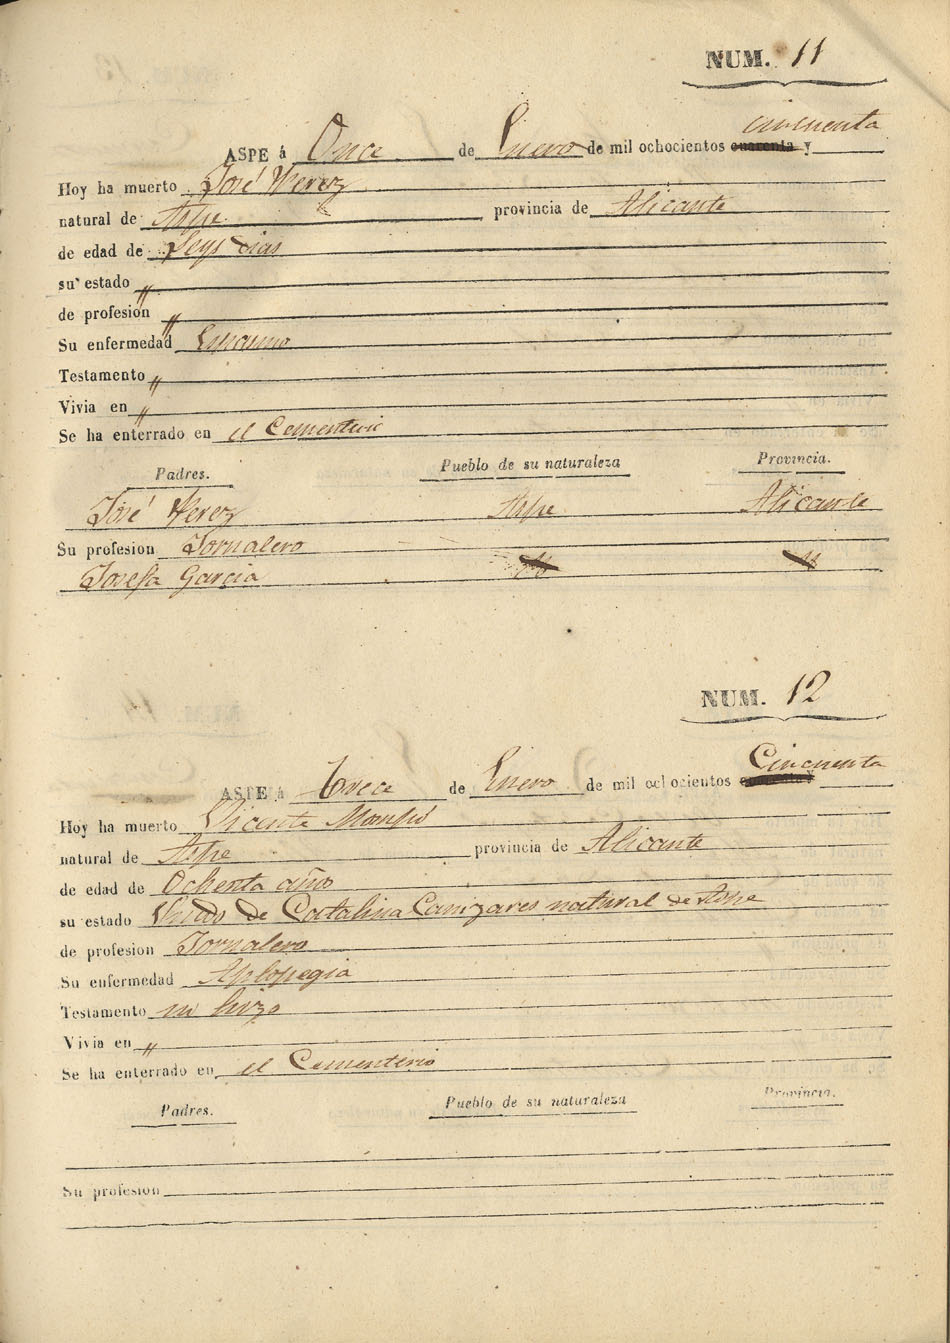 NUM. 11
cincuenta
ASPE á Once de Enero de mil ochocientos cuarenta y
Hoy ha muerto José Perez
natural de Aspe provincia de Alicante
de edad de Seys dias
su estado "
de profesion "
Su enfermedad
Testamento "
Vivia en "
Se ha enterrado en el Cementerio
Padres. Pueblo de su naturaleza Provincia.
José Perez Aspe Alicante
Su profesion Jornalero
Josefa Garcia
NUM. 12
Cincuenta
ASPE á Trece de Enero de mil ochocientos cuarenta y
Hoy ha muerto Vicente
natural de Aspe provincia de Alicante
de edad de Ochenta año
su estado Viudo de Catalina Canizares natural de Aspe
de profesion Jornalero
Su enfermedad Aplopegia
Testamento hizo
Vivia en "
Se ha enterrado en el Cementerio
Padres. Pueblo de su naturaleza Provincia.
Su profesion